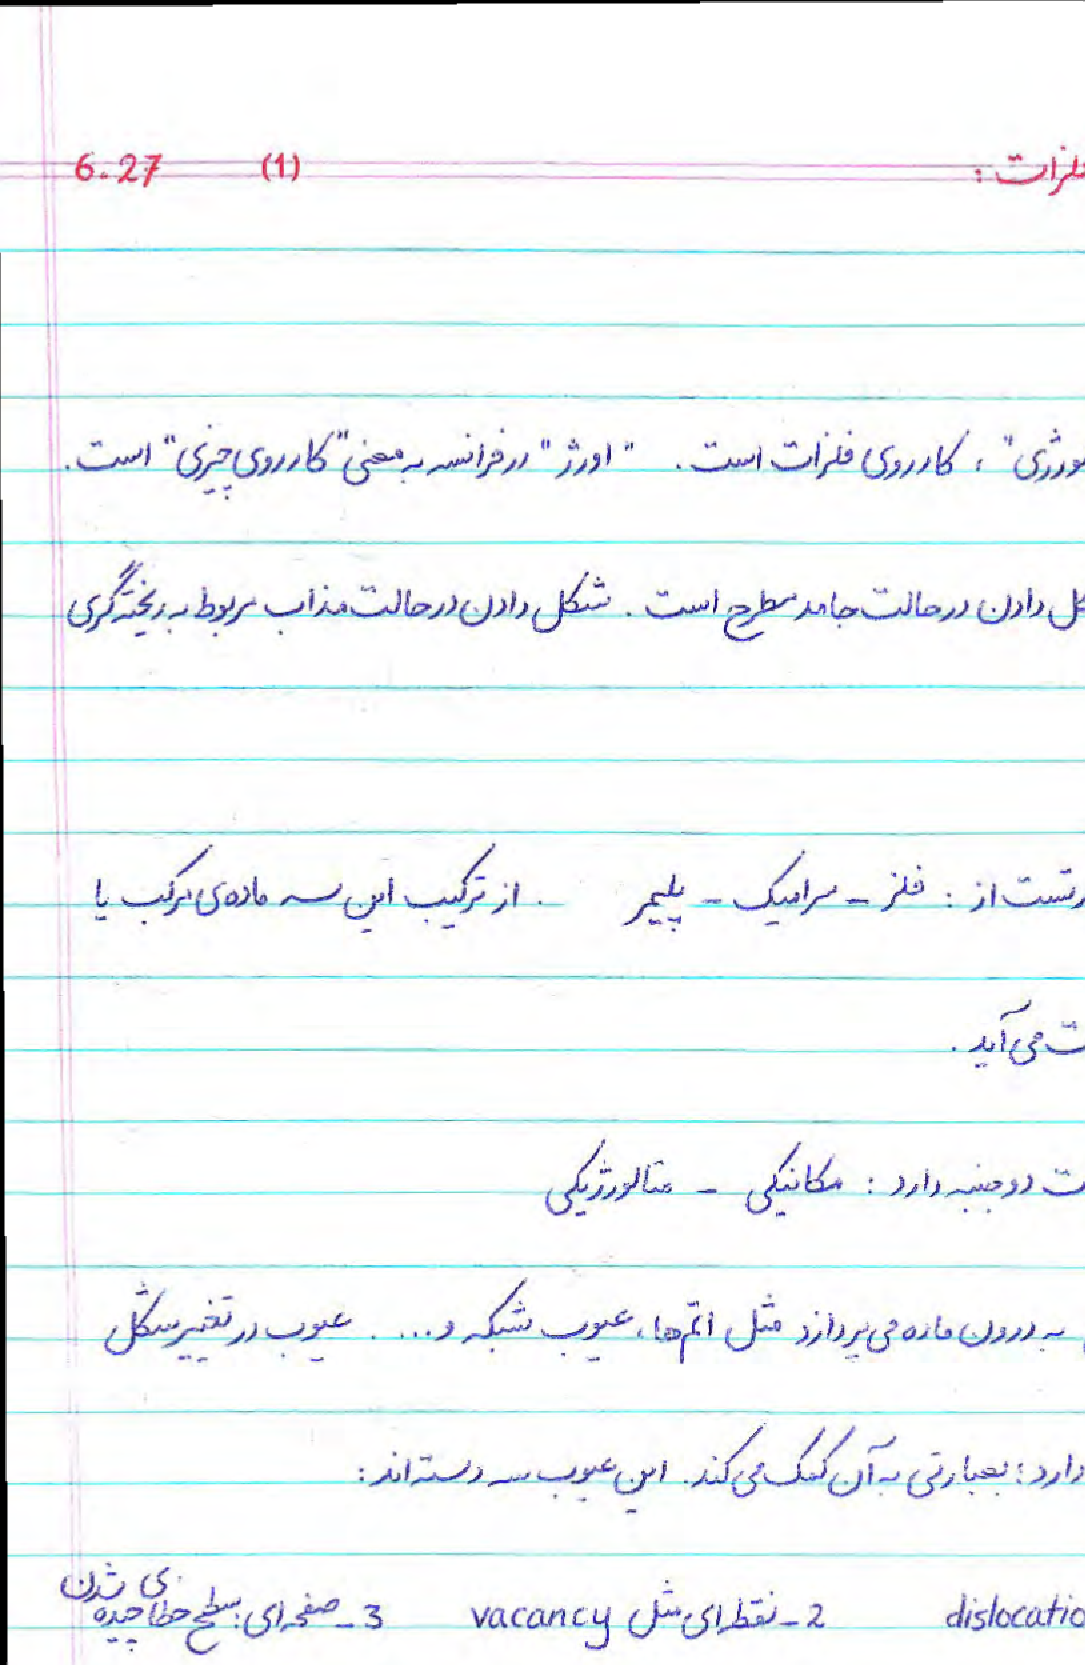 فلزات :          (1)          6.27
ورژی" ، کار روی فلزات است . "اورژ" در فرانسه به معنی "کار روی چیزی" است .
کل دادن در حالت جامد مطرح است . شکل دادن در حالت مذاب مربوط به ریخته‌گری
رتست از : فلز - سرامیک - پلیمر . از ترکیب این سه ماده‌ی مرکب یا
ت می‌آید .
ت دو جنبه دارد : مکانیکی - متالورژیکی
به درون ماده می‌پردازد مثل اتم‌ها ، عیوب شبکه و .... عیوب در تغییر شکل
دارد ؛ بعبارتی به آن کمک می‌کند . این عیوب سه دسته‌اند :
dislocatio   2- نقطه‌ای مثل vacancy   3- صفحه‌ای : سطح خطا چیده
ی شدن